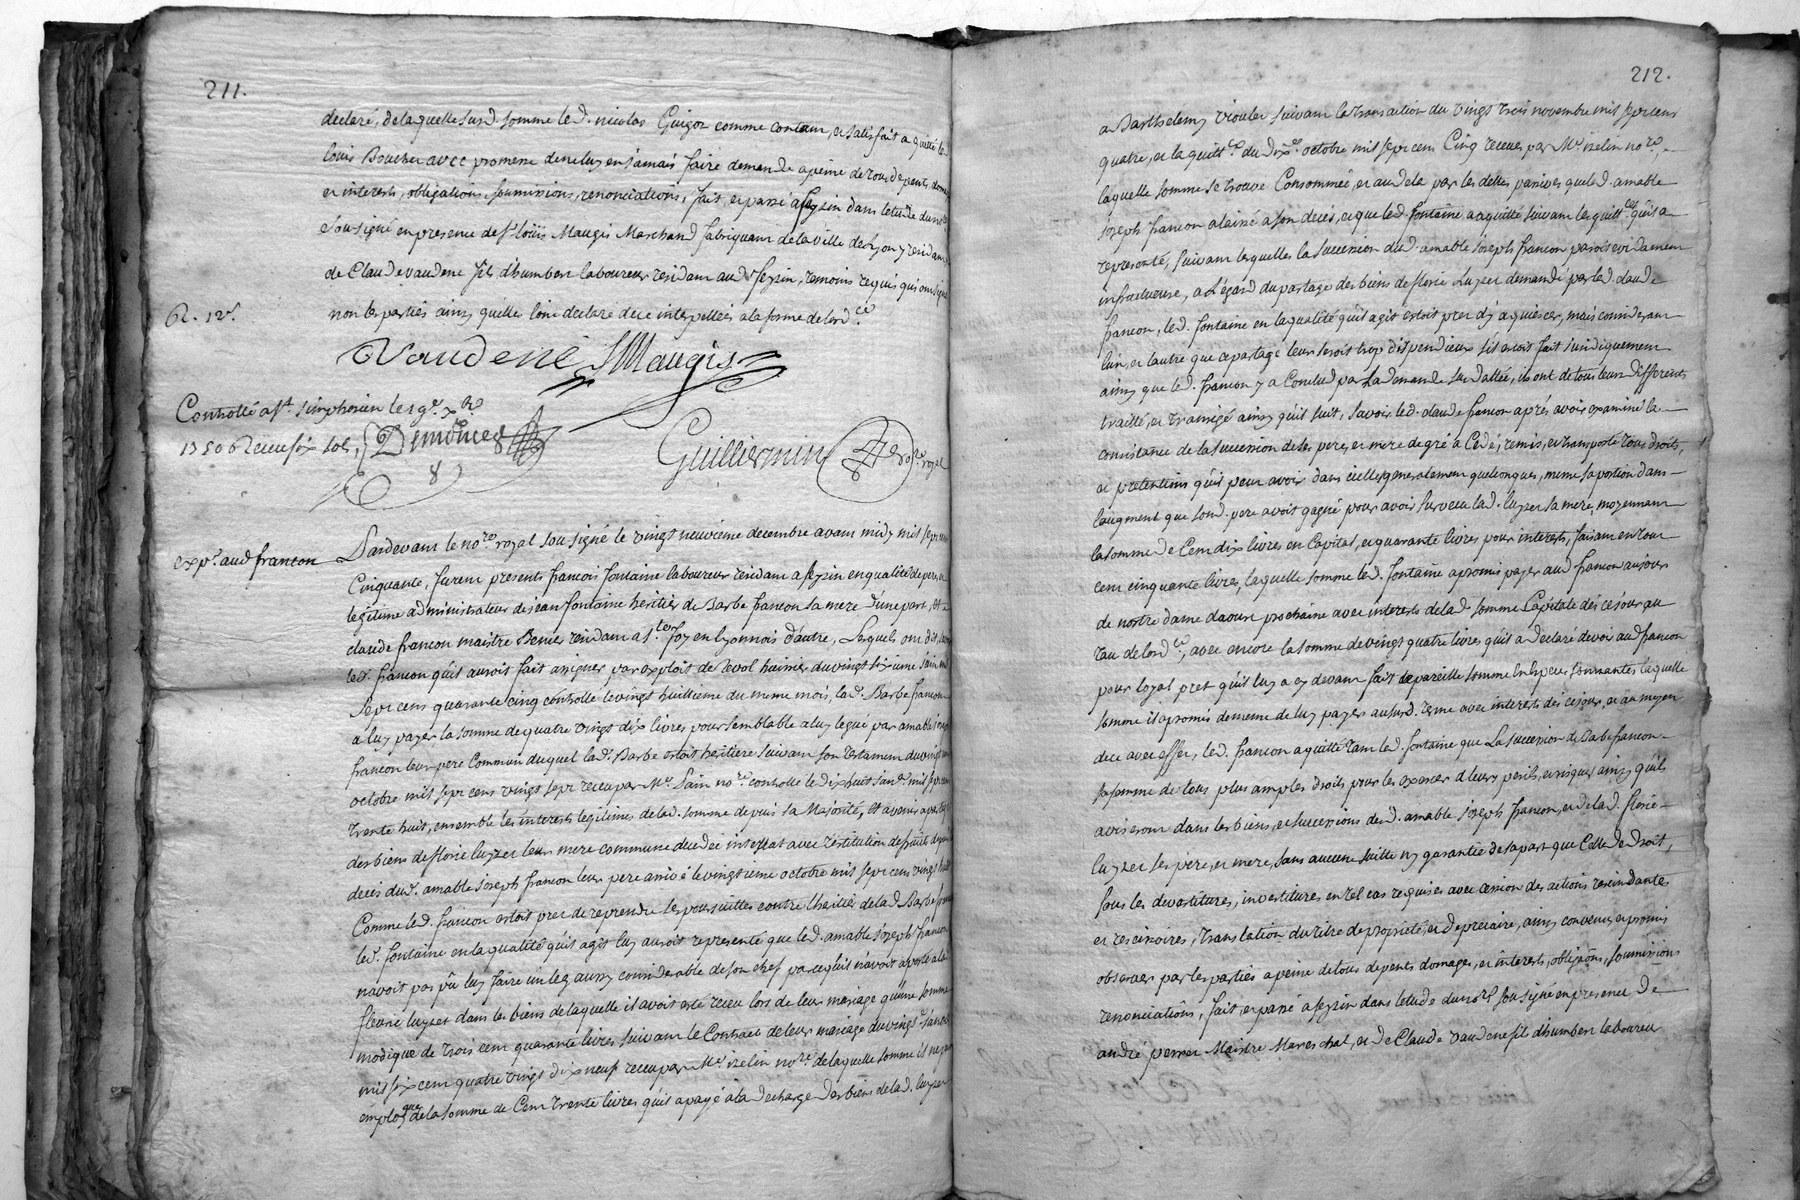 211.
declaré, de laquelle susd. somme led. nicolas Guigoz comme contant, et satisfait a quitté le
louis Boucher avec promesse de ne luy en jamais faire demande a peine de tous depents, dom
et interests, obligations, soumissions, renonciations, fait, et passé a feyzin dans letude du no.re
sousigné en presence de s.r louis Maugis Marchand fabriquant de la ville de Lyon y residant
de Claude vaudene fils d'humbert laboureur residant aud. feyzin, temoins requis qui ont signé
non les parties ainsy quelles l'ont declaré de ce interpellées a la forme de lord.ce
R. 12s.
Vaudene LMaugis
Controllé a St. simphorien le 19e. x.bre
1750 Receu six sols,
Guilliermin no.re royal
exp.e aud francon
Pardevant le no.re royal sousigné le vingt neuvieme decembre avant midy mil sept cent
Cinquante, furent presents francois fontaine laboureur residant a feyzin en qualité de pere, et
legitime administrateur de jean fontaine heritier de Barbe francon sa mere d'une part, et
claude francon maistre residant a s.te foy en lyonnois d'autre, Lesquels ont dit, savoir
led. francon qu'il auroit fait assigner par exploit de Revol huissier du vingt sixieme juin mil
sept cens quarante cinq controllé le vingt huitieme du meme mois, lad. Barbe francon
a luy payer la somme de quatre vingt dix livres pour semblable a luy leguée par amable joseph
francon leur pere commun duquel lad. Barbe estoit heritiere suivant son testament du vingt
octobre mil sept cens vingt sept receu par Me. Sain no.re controllé le dix huit janv.r mil sept cent
trente huit, ensemble les interests legitimes de lad. somme depuis sa Majorité, et a venir a partage
des biens de florie luyzet leur mere commune decedée intestat avec restitution de fruits depuis
deces dud. amable joseph francon leur pere arrivé le vingtieme octobre mil sept cens vingt huit
Comme led. francon estoit prest de reprendre les poursuittes contre lheritier de lad Barbe francon
led. fontaine en la qualité qu'il agit luy auroit representé que led. amable joseph francon
navoit pas pû luy faire un leg aussy considerable de son chef parcequ'il n'avoit aporté a la
fleurie luyzet dans les biens de laquelle il avoit esté receu lors de leur mariage qu'une somme
modique de trois cent quarante livres suivant le Contract de leur mariage du vingt janvier
mil six cent quatre vingt dix neuf receu par Me. izelin no.re de laquelle somme il ne
employé que de la somme de Cent trente livres qu'il a payé à la decharge des biens de lad. luyzet
212.
a Barthelemy viouler suivant la transaction du vingt trois novembre mil sept cens
quatre, et la quitt.ce du dix.e octobre mil sept cent Cinq receues par Me. izelin no.re,
laquelle somme se trouve Consommée, et audela par les dettes passives que led. amable
joseph francon a laissé a son deces, et que led. fontaine a aquitté suivant les quitt.ces qu'il a
representé, suivant lesquelles la succession dud. amable joseph francon paroit evidament
infructueuse, a l'egard du partage des biens de florie Luyzet demandé par led. claude
francon, led. fontaine en la qualité qu'il agit estoit prest d'y aquiescer, mais considerant
lun, et lautre que ce partage leur seroit trop dispendieux s'il estoit fait juridiquement
ainsy que led. francon y a Conclud par La demande susdattée, ils ont de tous leurs differents
traitté, et transigé ainsy qu'il suit, savoir led. claude francon aprés avoir examiné la
consistance de la succession de ses pere, et mere de gré a Cedé, remis, et transporté tous droits,
et pretentions qu'il peut avoir dans icelles generalement quelconques, meme sa portion dans
laugment que sond. pere avoit gagné pour avoir survecu lad. luyzet sa mere, moyennant
la somme de Cent dix livres en Capital, et quarante livres pour interests, faisant en tout
cent cinquante livres, laquelle somme led. fontaine a promis payer aud francon au jour
de nostre dame daoust prochaine avec interests de lad. somme Capitale dés ce jour au
taux de lord.ce, avec encore la somme de vingt quatre livres qu'il a declaré devoir aud francon
pour loyal prest qu'il luy a cy devant fait de pareille somme en Especes sonnantes laquelle
somme il a promis de meme de luy payer au susd. terme avec interests dés ce jour, et au moyen
de ce avec effet, led. francon a quitté tant led. fontaine que La succession de Barbe francon
sa femme de tous plus amples droits pour les exercer à leurs perils, et risques ainsy qu'ils
aviseront dans les biens, et successions desd. amable joseph francon, et de lad. florie
luyzet les pere, et mere, sans aucune suitte ny garantie de sa part que Celle de droit,
sous les devestitures, investitures en tel cas requises avec cession des actions rescindantes
et rescisoires, translation du titre de proprieté, et de precaire, ainsy convenu, et promis
observer par les parties a peine de tous depents domages, et interests, obligãons, soumissions
renonciations, fait, et passé a feyzin dans letude du no.re sousigné en presence de
andré perret Maistre Mareschal, et de Claude vaudene fils d'humbert laboureur